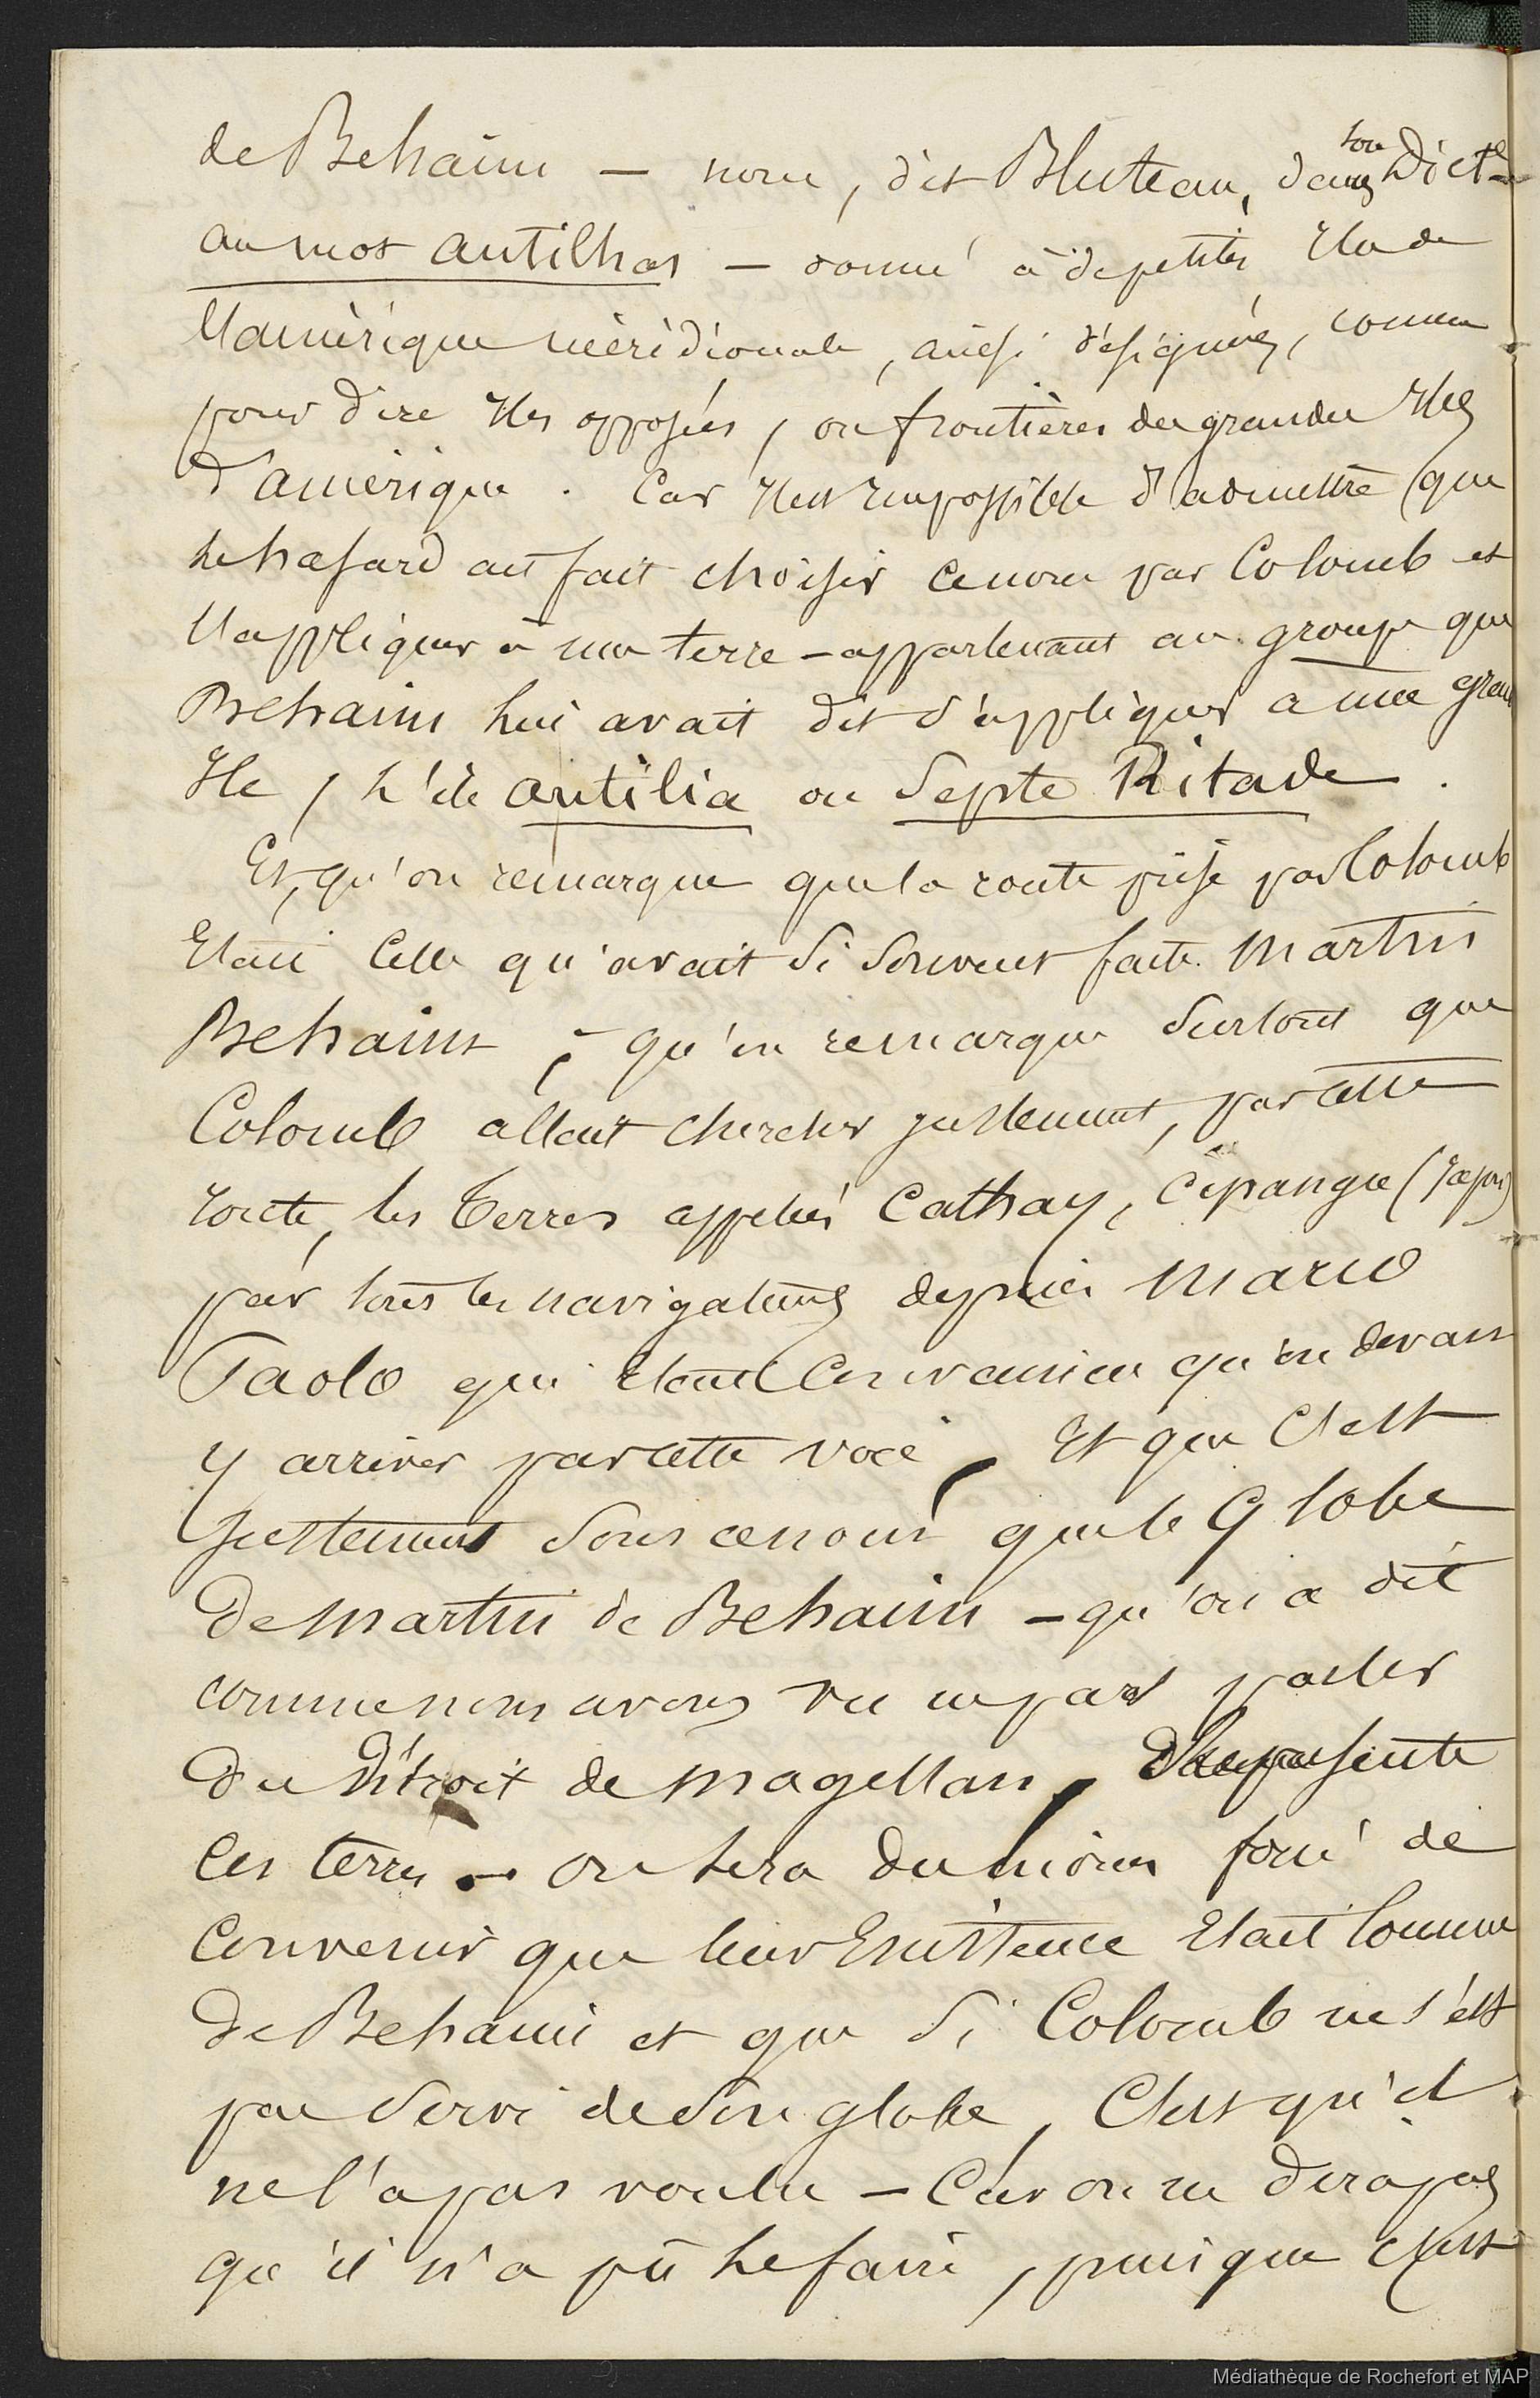 de Behaim — nom, dit Bluteau, dans son Dict.re
au mot antilhas — donné à de petites Iles de
l'amérique méridionale, ainsi désignées, comme
pour dire Iles opposées, ou frontières des grandes Iles
d'amérique. Car Il est Impossible d'admettre que
le hasard ait fait choisir ce nom par Colomb et
l'appliquer à une terre — appartenant au groupe que
Behaim lui avait dit s'appliquer à une grande
Ile, l'ile antilia ou Septe Ritade.
Et, qu'on remarque que la route prise par Colomb
Etait Celle qu'avait si souvent faite Martin
Behaim ; — qu'on remarque surtout que
Colomb allait chercher justement, par cette
route, les terres appelées Cathay, Cipangu (Japon)
par tous les navigateurs depuis Marco
Paolo qui était Convaincu qu'on devait
y arriver par cette voie, Et que C'est
justement sous ce nom que le Globe
de Martin de Behaim — qu'on a dit
comme nous avons vu ne pas parler
du Détroit de Magellan, Représente
Ces terres — on sera du moins forcé de
Convenir que leur Existence Etait Connue
de Behaim et que si Colomb ne s'est
pas servi de son globe, C'est qu'il
ne l'a pas voulu — Car on ne dira pas
qu'il n'a pû le faire, puisque c'est
Médiathèque de Rochefort et MAP